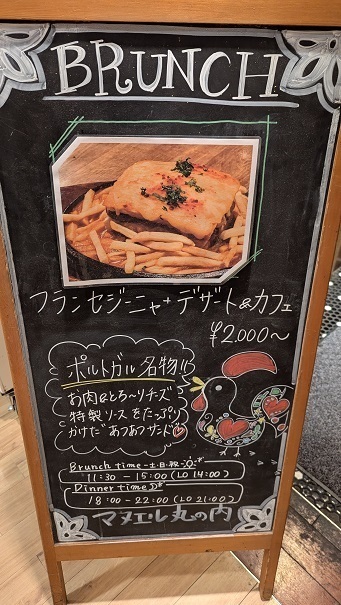 BRUNCH
フランセジーニャ+デザート&カフェ
¥2,000〜
ポルトガル名物!!
お肉&とろ〜りチーズ
特製ソースをたっぷり
かけた゛あつあつサンド♡
Brunch time-土・日・祝-
11:30 - 15:00 (LO 14:00)
Dinner time
18:00 - 22:00 (LO 21:00)
マヌエル丸の内